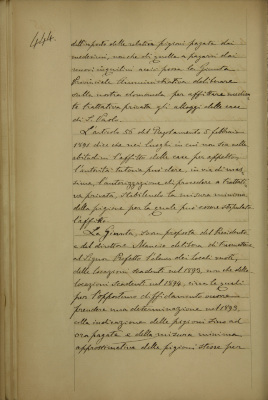 444.
dell'importo delle relative pigioni pagate dai
medesimi, non che di quelle a pagarsi dai
nuovi inquilini acciò possa la Giunta
Provinciale Amministrativa deliberare
sulla nostra domanda per affittare median-
te trattativa privata gli alloggi delle case
di S. Paolo.
L'articolo 53 del Regolamento 5 febbraio
1891 dice che nei luoghi in cui non sia nelle
abitudini l'affitto delle case per appalto,
l'autorità tutoria può dare, in via di mas-
sima, l'autorizzazione di procedere a trattati-
va privata, stabilendo la misura minima
della pigione per la quale può essere stipulato
l'affitto.
La Giunta, su proposta del Presidente
e del direttore
al Signor Prefetto l'elenco dei locali vuoti,
delle locazioni scadenti nel 1893, non che delle
locazioni scadenti nel 1894, circa le quali
per l'opportuno diffidamento occorre
prendere una determinazione nel 1893,
colla indicazione delle pigioni sino ad
ora pagate e della misura minima
approssimativa delle pigioni stesse per